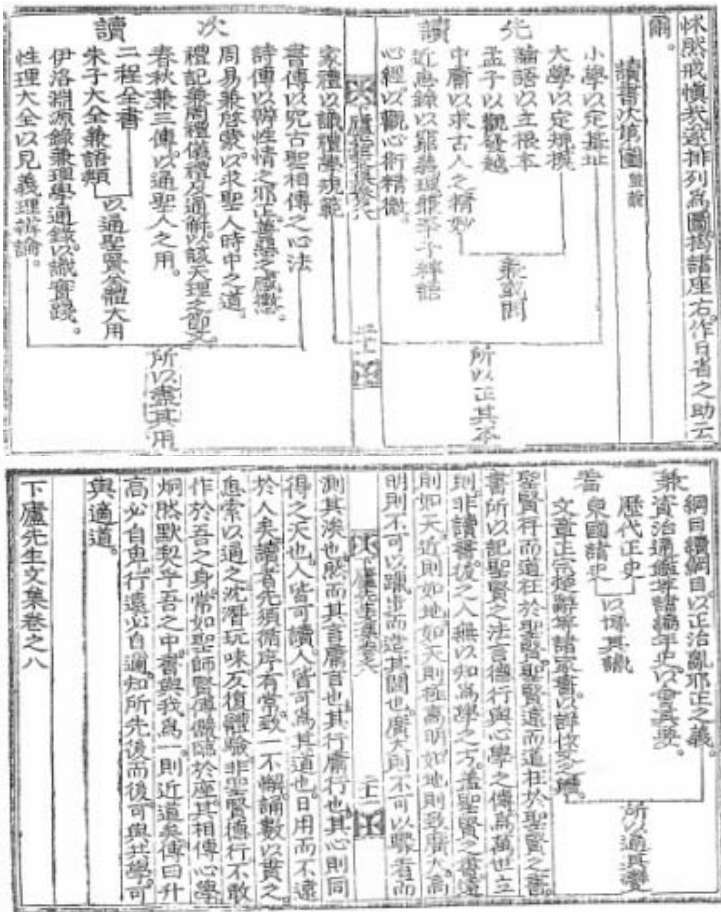 怵然戒愼哉遂排列爲圖揭諸座右作日省之助云
爾。
讀書次第圖 並說
先讀
小學以定基址
大學以定規模
論語以立根本
孟子以觀發越
中庸以求古人之精妙
兼或問
近思錄以羅義理兼朱子粹語
心經以觀心術精微。
所以正其本
次讀
家禮以識禮學規範
書傳以究古聖相傳之心法
詩傳以辨性情之邪正善惡之感徵。
周易兼啓蒙以求聖人時中之道。
禮記兼周禮儀禮及通解以該天理之節文。
春秋兼三傳以通聖人之用。
二程全書
朱子大全兼語類
以通聖賢全體大用
伊洛淵源錄兼理學通錄以識實踐。
性理大全以見義理辨論。
所以盡其用
兼看
綱目續綱目以正治亂邪正之義。
資治通鑑等諸編年史以會其要。
歷代正史
東國諸史
以博其識
文章正宗楚辭等諸家書以詳作文之體。
所以通其變
聖賢往而道在於聖賢聖賢遠而道在於聖賢之書。
書所以記聖賢之法言德行與心學之傳爲萬世立
則非讀書後之人無以知爲學之方。盖聖賢之書遠
則如天近則如地如天則極高明如地則致廣大高
明則不可以躐進而造其閫也。廣大則不可以驟看而
測其涘也然而其言庸言也其行庸行也其心則同
得之天也。人皆可讀人皆可爲其道也。日用而不遠
於人矣。讀者先須循序有常。致一不懈。誦數以貫之。
思索以通之。沈潛玩味反復體驗非聖賢德行不敢
作於吾之身。常如聖師賢傅儼臨於座其相傳心學。
炯然默契乎吾之中。書與我爲一則近道矣。傳曰升
高必自卑。行遠必自邇。知所先後而後可與共學。可
與適道。
下廬先生文集卷之八